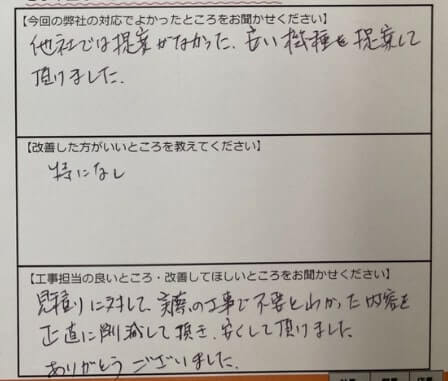 【今回の弊社の対応でよかったところをお聞かせください】
他社では提案がなかった、安い機種を提案して
頂けました。
【改善した方がいいところを教えてください】
特になし
【工事担当の良いところ・改善してほしいところをお聞かせください】
見積りに対して、実際の工事で不要とわかった内容を
正直に削減して頂き、安くして頂けました
ありがとうございました。